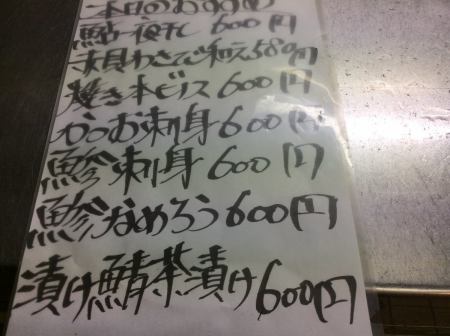 本日のおすすめ
鮎一夜干し 600円
赤貝わさび和え 580円
焼き本ビノス 600円
かつお刺身 600円
鯵刺身 600円
鯵なめろう 600円
漬け鯖茶漬け 600円